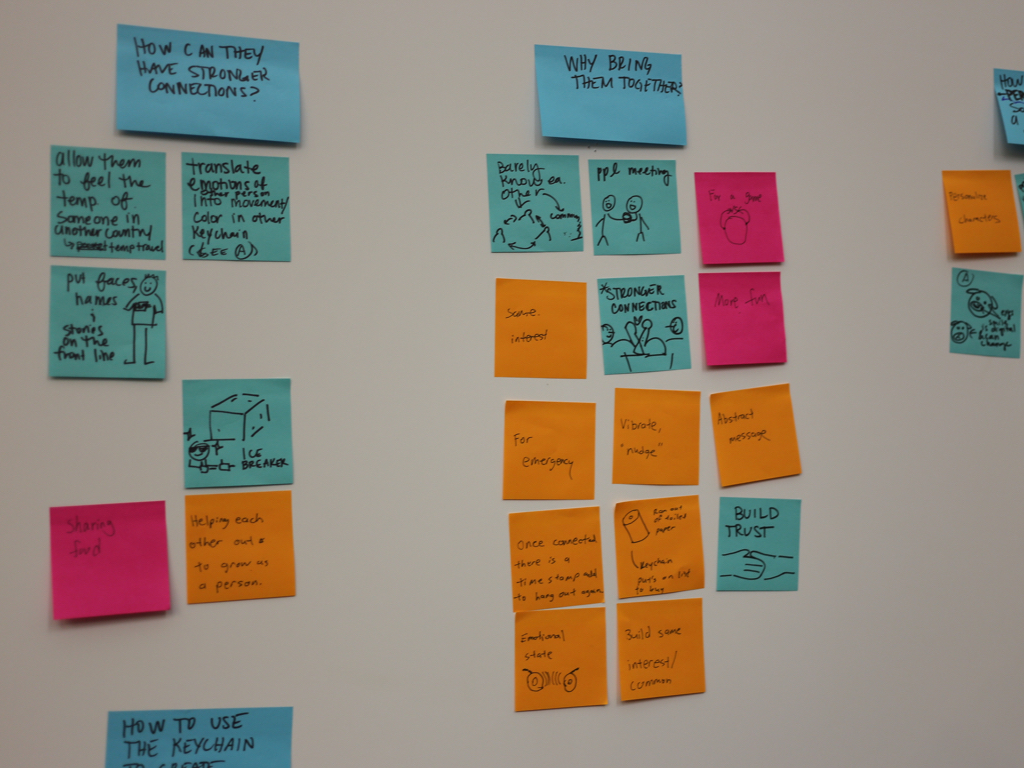 HOW CAN THEY
HAVE STRONGER
CONNECTIONS?
allow them
to feel the
temp of
someone in
another country
temp travel
translate
emotions of
other person
into movement/
color in other
keychain
(SEE A)
put faces,
names
&
stories
on the
front line
ICE
BREAKER
Sharing
food
Helping each
other out &
to grow as
a person.
HOW TO USE
THE KEYCHAIN
TO CREATE
WHY BRING
THEM TOGETHER?
Barely
know ea.
other
ppl meeting
For a
interest
*STRONGER
CONNECTIONS
More fun.
For
emergency
Vibrate,
"nudge"
Abstract
message
Once connected
there is a
time stamp add
to hang out again.
Ran out
of toilet
paper
Keychain
puts on list
to buy
BUILD
TRUST
Emotional
state
Build some
interest/
common
HOW
a
Personalize
characters.
A
is digital
&can
change